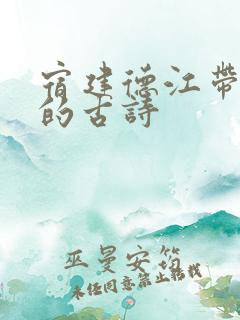 宿建德江带
的古詩
巫曼安筠
未经同意禁止转载